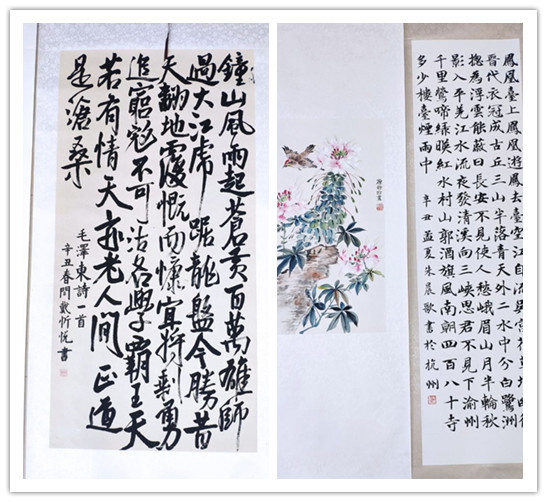 鐘山風雨起蒼黃百萬雄師
過大江虎踞龍盤今勝昔
天翻地覆慨而慷宜將剩勇
追窮寇不可沽名學霸王天
若有情天亦老人間正道
是滄桑
毛澤東詩一首
辛丑春問戴忻悅書
鳳凰臺上鳳凰遊鳳去臺空江自流吳宮花草埋幽徑
晉代衣冠成古丘三山半落青天外二水中分白鷺洲
揔為浮雲能蔽日長安不見使人愁峨眉山月半輪秋
影入平羌江水流夜發清溪向三峽思君不見下渝州
千里鶯啼綠暎紅水村山郭酒旗風南朝四百八十寺
多少樓臺煙雨中
辛丑孟夏朱晨歡書於杭州